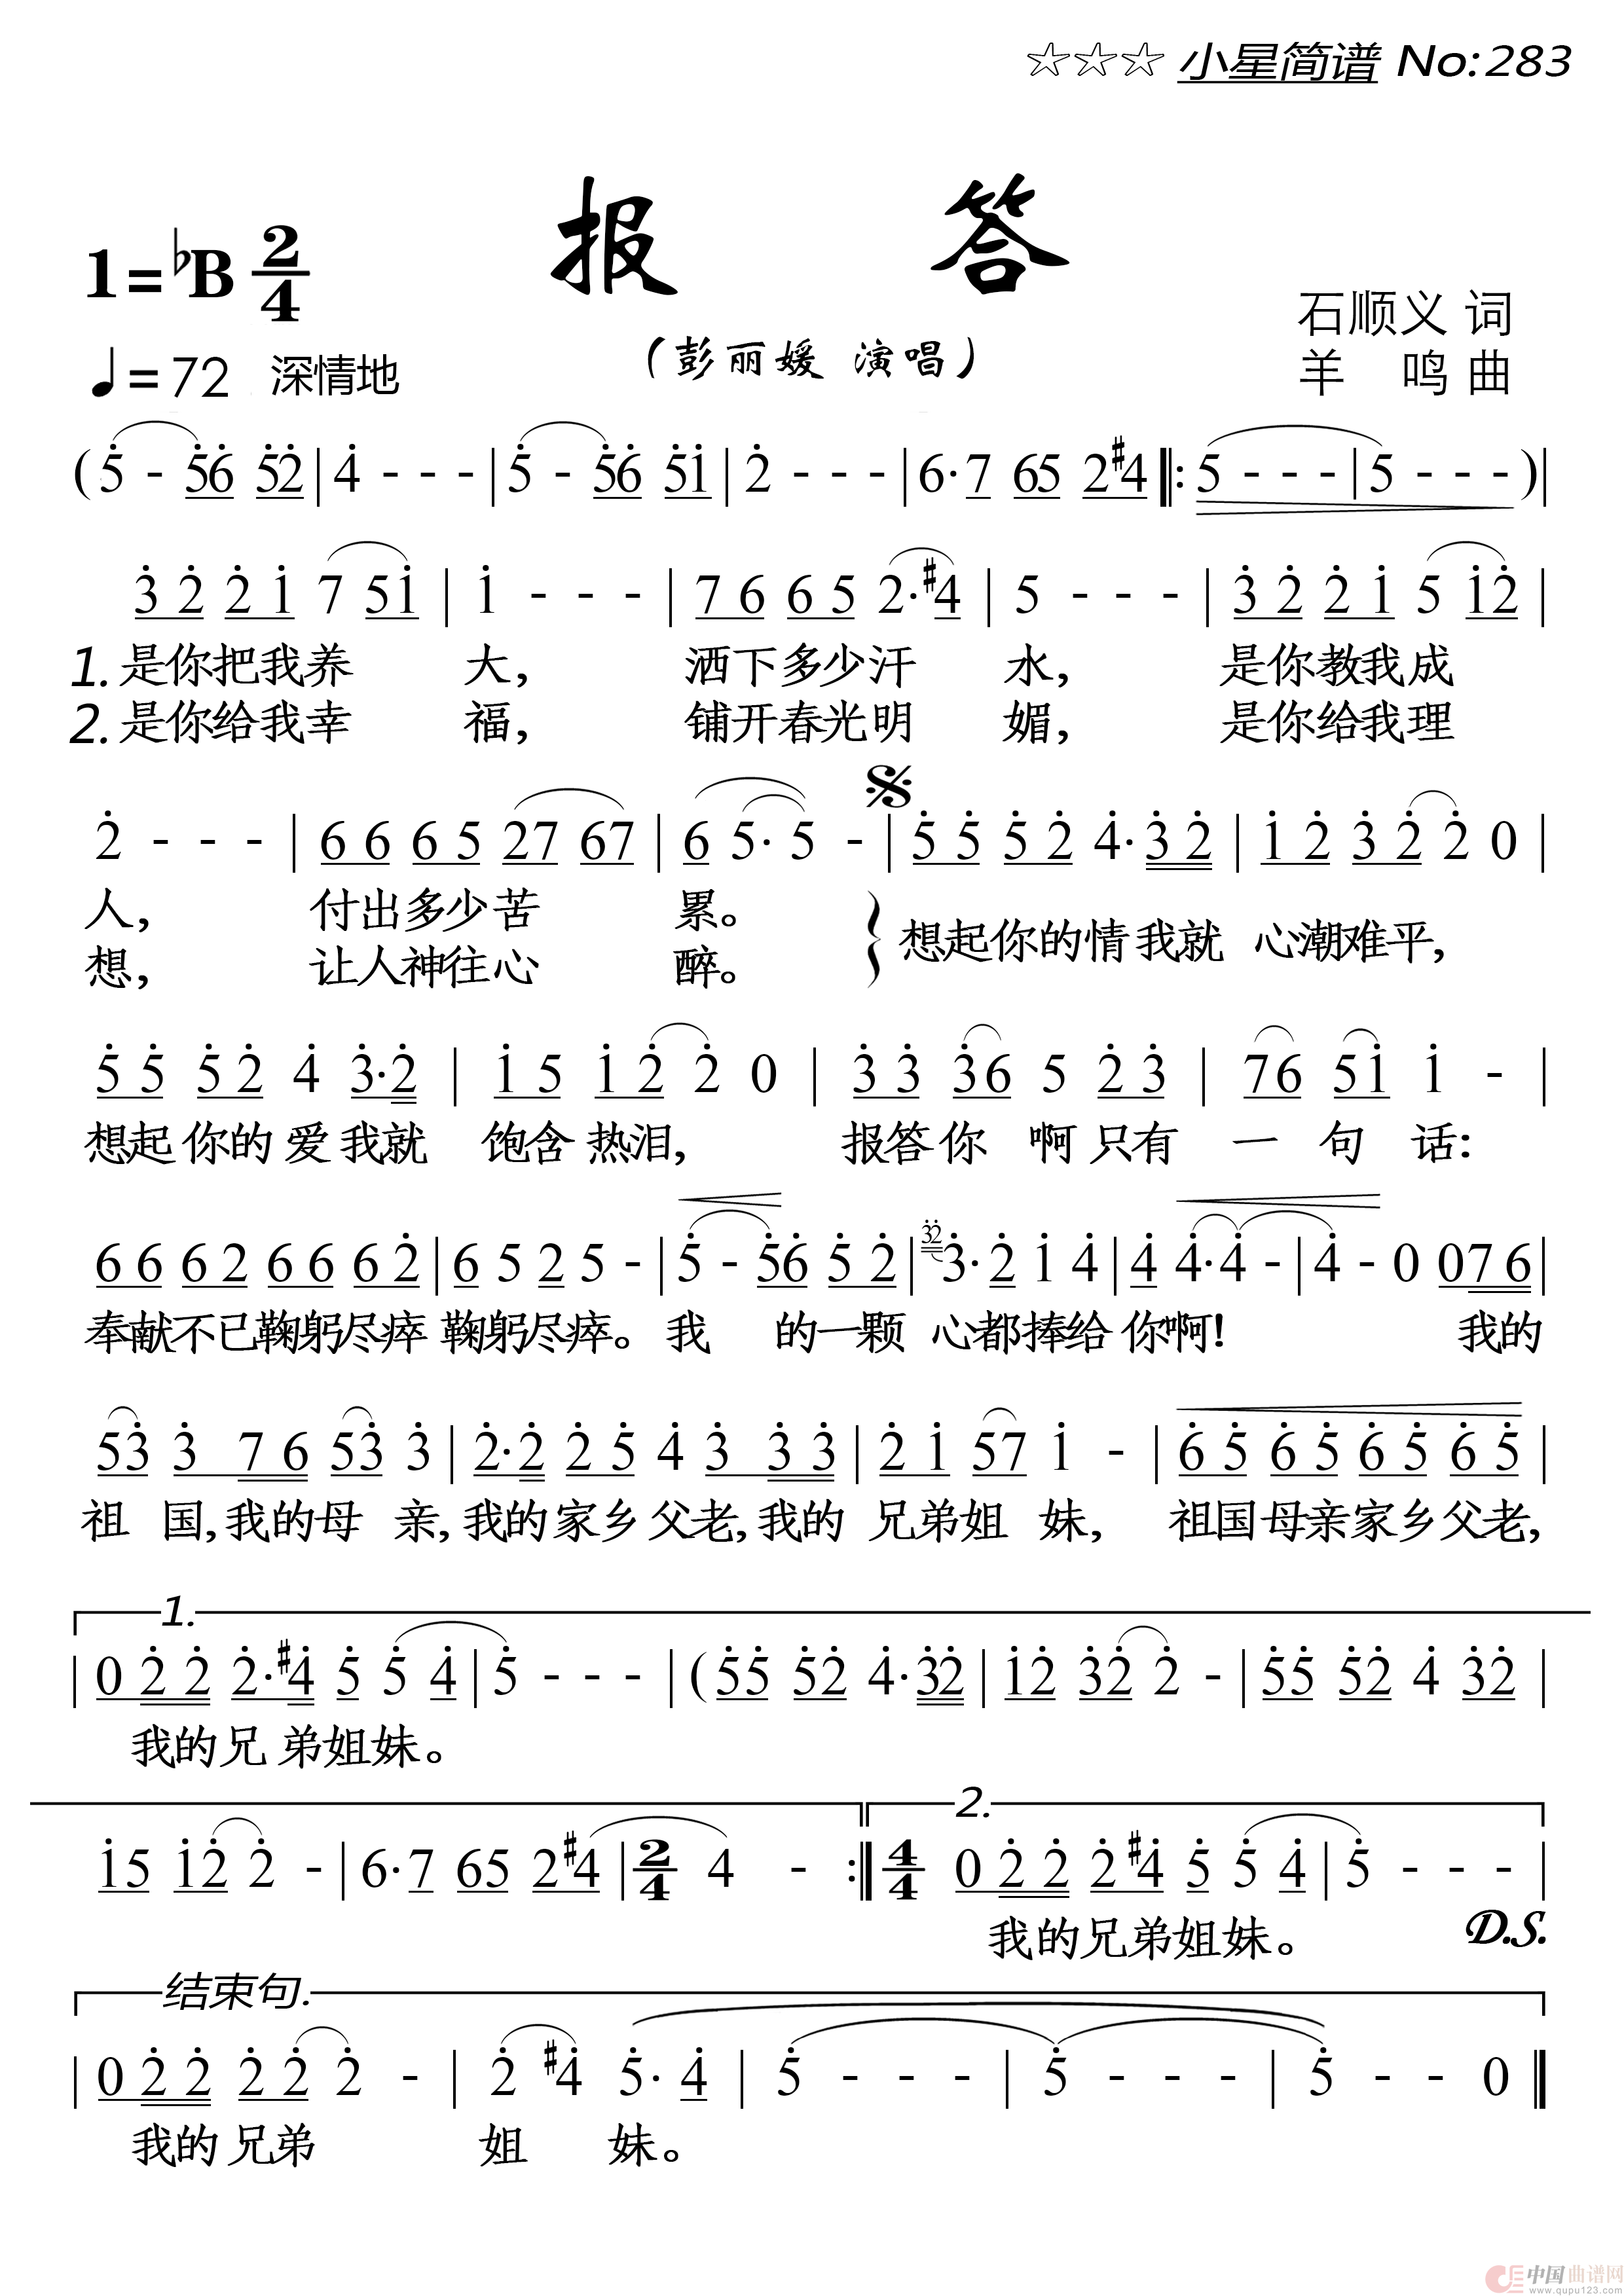 ☆☆☆ 小星简谱 No:283
报 答
1=♭B 2/4
♩=72 深情地
（彭丽媛 演唱）
石顺义 词
羊 鸣 曲
(5̇ - 5̇6̇ 5̇2̇ | 4̇ - - - | 5̇ - 5̇6̇ 5̇1̇ | 2̇ - - - | 6· 7 65 2#4 ‖: 5 - - - | 5 - - - )|
3̇ 2̇ 2̇ 1̇ 7 51̇ | 1̇ - - - | 7 6 6 5 2·#4 | 5 - - - | 3̇ 2̇ 2̇ 1̇ 5 1̇2̇ |
1. 是你把我养 大， 洒下多少汗 水， 是你教我成
2. 是你给我幸 福， 铺开春光明 媚， 是你给我理
2̇ - - - | 6 6 6 5 27 67 | 6 5· 5 - | 5̇ 5̇ 5̇ 2̇ 4̇· 3̇ 2̇ | 1̇ 2̇ 3̇ 2̇ 2̇ 0 |
人， 付出多少苦 累。
想起你的情我就 心潮难平，
想， 让人神往心 醉。
5̇ 5̇ 5̇ 2̇ 4̇ 3̇·2̇ | 1̇ 5 1̇ 2̇ 2̇ 0 | 3̇ 3̇ 3̇6 5 2̇ 3̇ | 76 51̇ 1̇ - |
想起 你的 爱 我就 饱含 热泪， 报答你 啊 只有 一 句 话：
6 6 6 2 6 6 6 2̇ | 6 5 2 5 - | 5̇ - 5̇6̇ 5̇ 2̇ | 3̇2̇ 3̇· 2̇ 1̇ 4̇ | 4̇ 4̇·4̇ - | 4̇ - 0 07 6 |
奉献不已鞠躬尽瘁 鞠躬尽瘁。我 的一颗 心都捧给 你啊！ 我的
53̇ 3̇ 7 6 53̇ 3̇ | 2̇·2̇ 2̇ 5̇ 4̇ 3̇ 3̇ 3̇ | 2̇ 1̇ 57 1̇ - | 6̇ 5̇ 6̇ 5̇ 6̇ 5̇ 6̇ 5̇ |
祖 国，我的母 亲，我的家乡父老，我的 兄弟姐 妹， 祖国母亲家乡父老，
1.
| 0 2̇ 2̇ 2̇·#4̇ 5̇ 5̇ 4̇ | 5̇ - - - | (5̇5̇ 5̇2̇ 4̇·3̇2̇ | 1̇2̇ 3̇2̇ 2̇ - | 5̇5̇ 5̇2̇ 4̇ 3̇2̇ |
我的兄 弟姐妹。
2.
1̇5 1̇2̇ 2̇ - | 6·7 65 2#4 | 2/4 4 - :‖ 4/4 0 2̇ 2̇ 2̇#4̇ 5̇ 5̇ 4̇ | 5̇ - - - |
我的兄弟姐妹。 D.S.
结束句.
| 0 2̇ 2̇ 2̇ 2̇ 2̇ - | 2̇ #4̇ 5̇· 4̇ | 5̇ - - - | 5̇ - - - | 5̇ - - 0 ‖
我的 兄弟 姐 妹。
中国曲谱网
www.qupu123.com